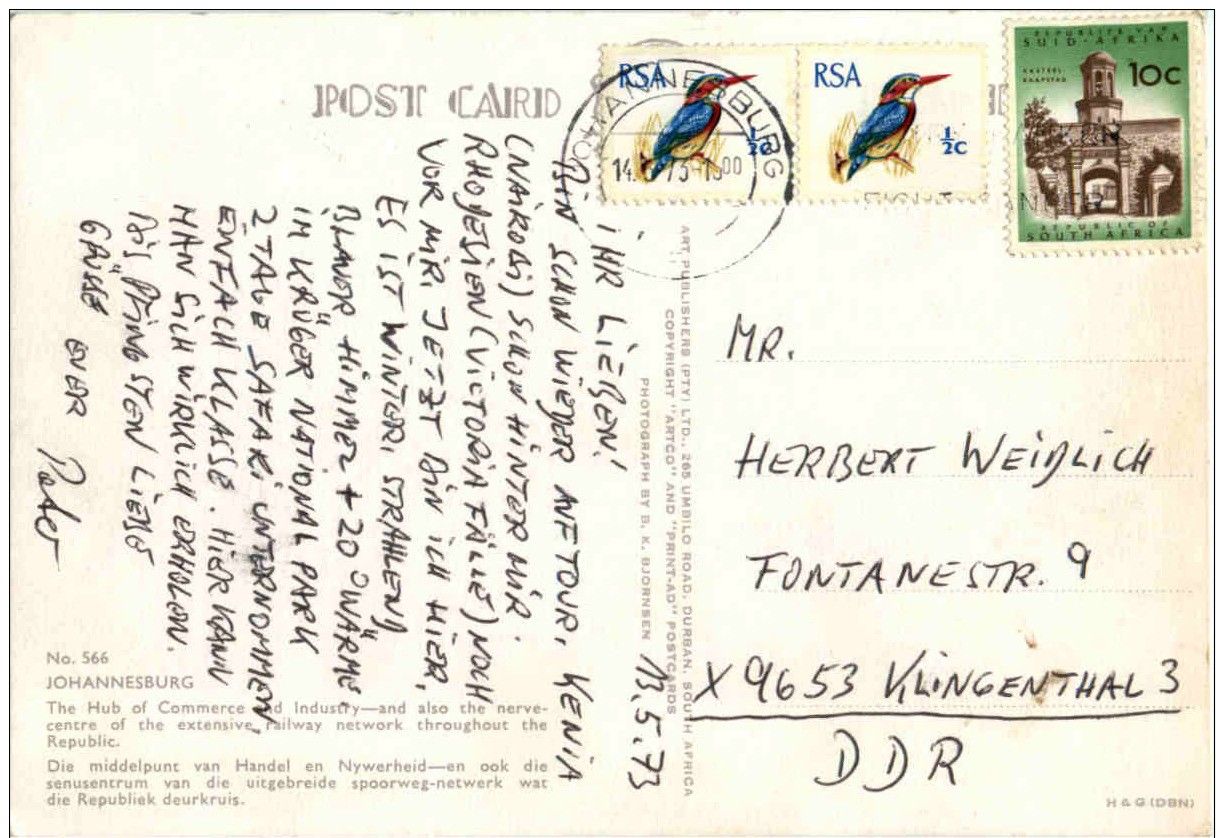 POST CARD
JOHANNESBURG
RSA
½c
RSA
½c
REPUBLIEK VAN
SUID-AFRIKA
KASTEEL
KAAPSTAD
10c
REPUBLIC OF
SOUTH AFRICA
13.5.73
IHR LIEBEN!
BIN SCHON WIEDER AUF TOUR, KENIA
(NAIROBI) SCHON HINTER MIR.
RHODESIEN (VICTORIA FÄLLE) NOCH
VOR MIR. JETZT BIN ICH HIER,
ES IST WINTER, STRAHLEND
BLAUER HIMMEL + 20° WÄRME
IM KRÜGER NATIONAL PARK
2 TAGE SAFARI UNTERNOMMEN,
EINFACH KLASSE. HIER KANN
MAN SICH WIRKLICH ERHOLEN.
BIS PFINGSTEN LIEBE
GRÜSSE EUER
Peter
ART PUBLISHERS (PTY) LTD., 265 UMBILO ROAD, DURBAN, SOUTH AFRICA
COPYRIGHT "ARTCO" AND "PRINT-AD" POSTCARDS
PHOTOGRAPH BY B. K. BJORNSEN
MR.
HERBERT WEIßLICH
FONTANESTR. 9
X 9653 KLINGENTHAL 3
DDR
No. 566
JOHANNESBURG
The Hub of Commerce and Industry—and also the nerve-
centre of the extensive railway network throughout the
Republic.
Die middelpunt van Handel en Nywerheid—en ook die
senusentrum van die uitgebreide spoorweg-netwerk wat
die Republiek deurkruis.
H & G (DBN)